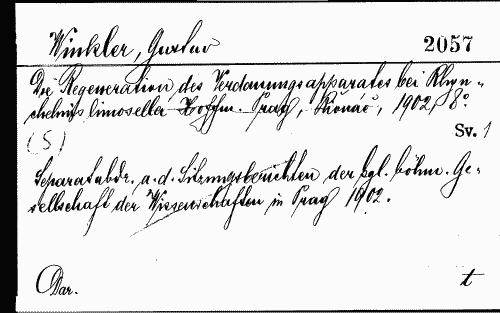 Winkler, Gustav
2057
Die Regeneration des Verdauungsapparates bei Rhyn-
chelmis limosella Hoffm. Prag, Řivnáč, 1902, 8°.
Sv. 1
(S)
Separatabdr. a. d. Sitzungsberichten der kgl. böhm. Ge-
sellschaft der Wissenschaften in Prag 1902.
Dar.
t